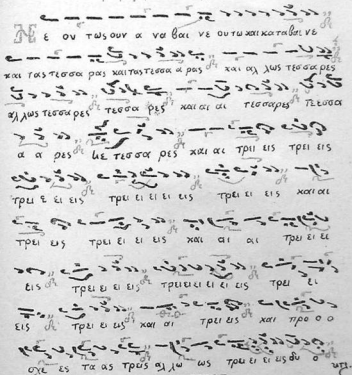 Ν ε ον τως ουν α να βαι νε ουτω και καταβαι νε
και τας τεσσα ρας και τας τεσσα α ρας και αλ λως τεσσα ρες
αλλως τεσσα ρες τεσσα ρες και αι αι τεσσαρες τεσσα
α α ρες με τεσσα ρες και αι τρι εις τρει εις
τρει ε ει εις τρει ει ει ει εις τρει εις και αι
τρει εις τρει ει ει εις και αι αι τρει ει ει
εις τρει ει ει ει εις τρει ει ει ει εις τρει ει
εις τρει ει ει εις και αι τρει εις και προ ο ο
σχε ες τα ας τρεις αλ λω ως τρει ει ει εις δυ ο